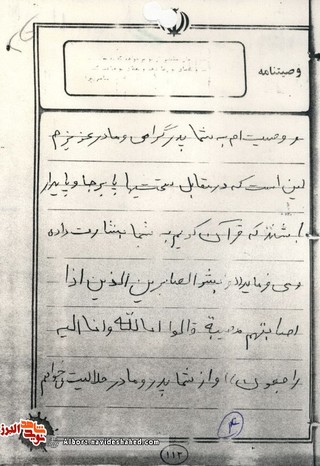 وصیتنامه
و وصیت ام به شما پدر گرامی و مادر عزیزم
این است که در مقابل سختیها پا برجا و پایدار
باشید که قرآن کریم به شما بشارت داده
و می فرماید: بشر الصابرین الذین اذا
اصابتهم مصیبة قالوا انا لله و انا الیه
راجعون)) و از شما پدر و مادر حلالیت می خواهم
۴
۱۱۲
Alborz.navideshahed.com